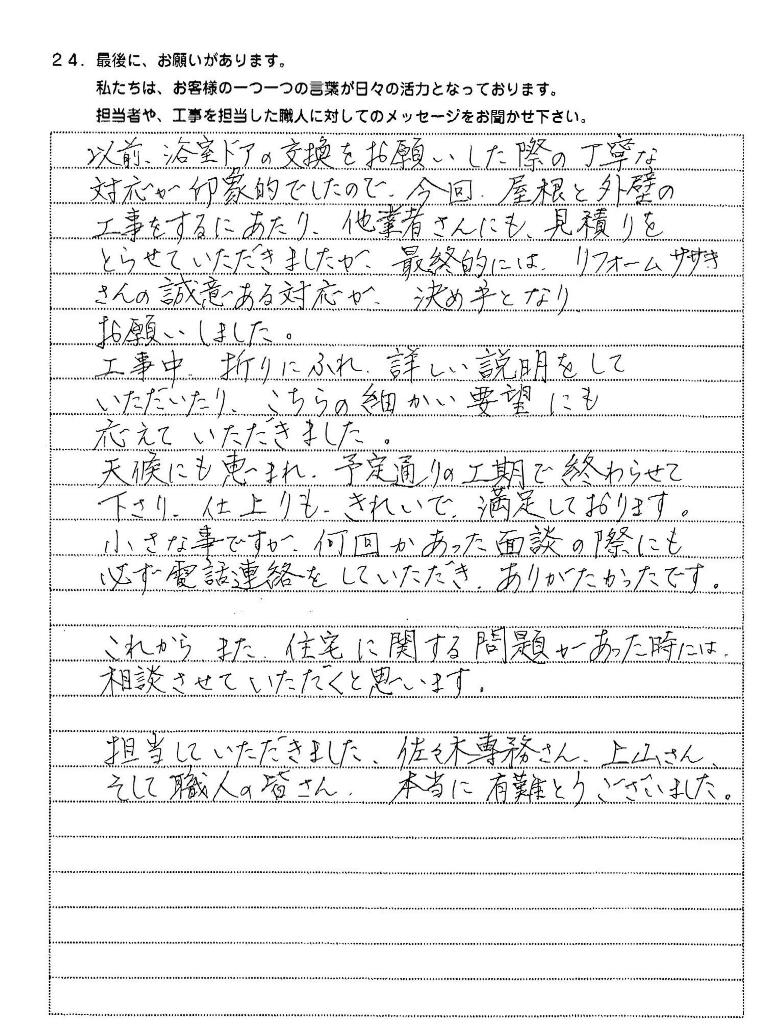 24. 最後に、お願いがあります。
私たちは、お客様の一つ一つの言葉が日々の活力となっております。
担当者や、工事を担当した職人に対してのメッセージをお聞かせ下さい。
以前、浴室ドアの交換をお願いした際の丁寧な
対応が印象的でしたので、今回、屋根と外壁の
工事をするにあたり、他業者さんにも、見積りを
とらせていただきましたが、最終的には、リフォームササキ
さんの誠意ある対応が、決め手となり
お願いしました。
工事中、折りにふれ、詳しい説明をして
いただいたり、こちらの細かい要望にも
応えていただきました。
天候にも恵まれ、予定通りの工期で終わらせて
下さり、仕上りも、きれいで、満足しております。
小さな事ですが、何回かあった面談の際にも
必ず電話連絡をしていただき、ありがたかったです。
これからまた、住宅に関する問題があった時には、
相談させていただくと思います。
担当していただきました、佐々木専務さん、上山さん、
そして職人の皆さん、本当に有難とうございました。